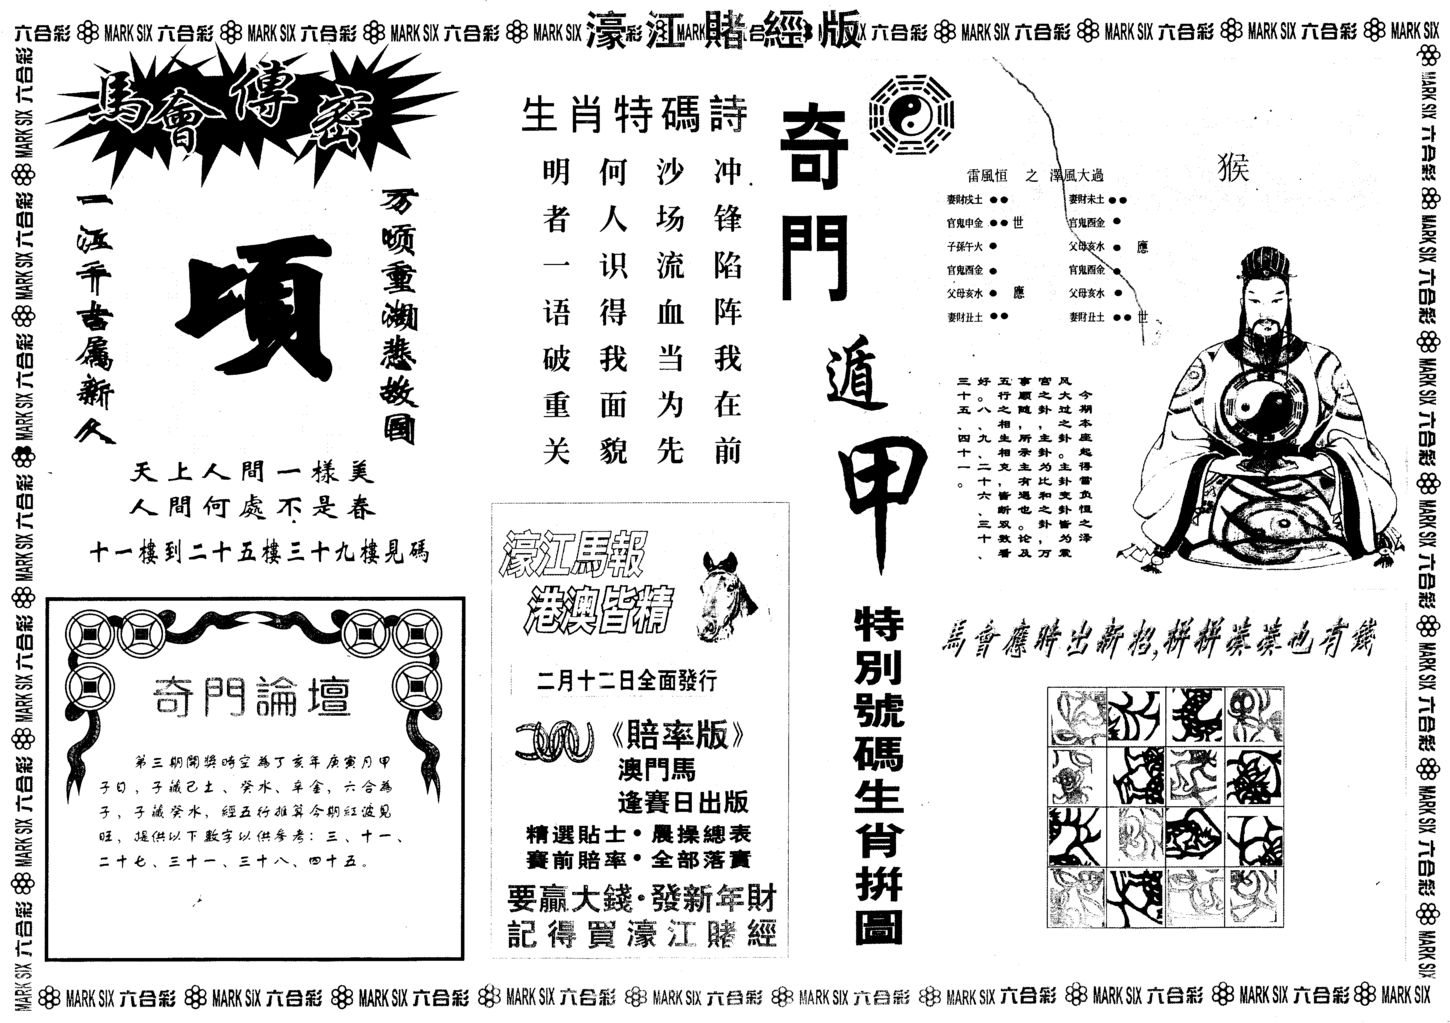 濠江賭經版
六合彩 MARK SIX 六合彩 MARK SIX 六合彩 MARK SIX 六合彩 MARK SIX
六合彩 MARK SIX 六合彩 MARK SIX 六合彩 MARK SIX 六合彩 MARK SIX
馬會傳密
万顷重湖悲故国
頃
一江千古属新久
天上人間一樣美
人間何處不是春
十一樓到二十五樓三十九樓見碼
奇門論壇
第三期開獎時空為丁亥年庚寅月甲
子日，子藏己土、癸水、辛金，六合為
子，子藏癸水，經五行推算今期紅波見
旺，提供以下數字以供參考：三、十一、
二十七、三十一、三十八、四十五。
生肖特碼詩
冲锋陷阵我在前
沙场流血当为先
何人识得我面貌
明者一语破重关
濠江馬報
港澳皆精
二月十二日全面發行
《賠率版》
澳門馬
逢賽日出版
精選貼士·晨操總表
賽前賠率·全部落實
要贏大錢·發新年財
記得買濠江賭經
奇門遁甲
特別號碼生肖拼圖
猴
雷風恒 之 澤風大過
妻財戌土 ●● 妻財未土 ●●
官鬼申金 ●● 世 官鬼酉金 ●
子孫午火 ● 父母亥水 ● 應
官鬼酉金 ● 官鬼酉金 ●
父母亥水 ● 應 父母亥水 ●
妻財丑土 ●● 妻財丑土 ●● 世
今期本座起得雷负恒之泽
风大过之卦。主卦变卦皆为震
宫之卦，主卦为比和之卦，万
事顺随所亲主，有遇也。论及
五行之相生相克，皆断双数看
好。八、九、二十六、三十、
三十五、四十一。
馬會應時出新招,拼拼湊湊也有錢